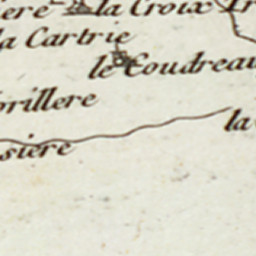 la Croix
la Cartrie
le Coudreau
rillere
la
siere